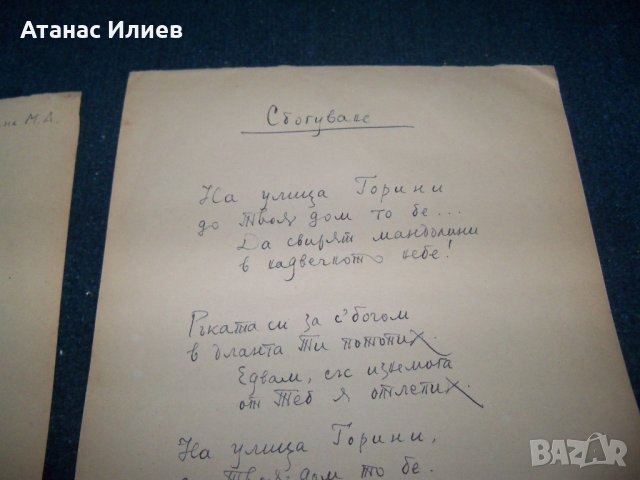 Атанас Илиев
на М.Д.
Сбогуване
На улица Горини
до твоя дом то бе...
Да свирят мандолини
в надвечкото небе!
Ръката си за с'богом
в дланта ти потопих.
Едвам, със изнемога
от теб я отлепих.
На улица Горини,
до твоя дом то бе.
BAZAR